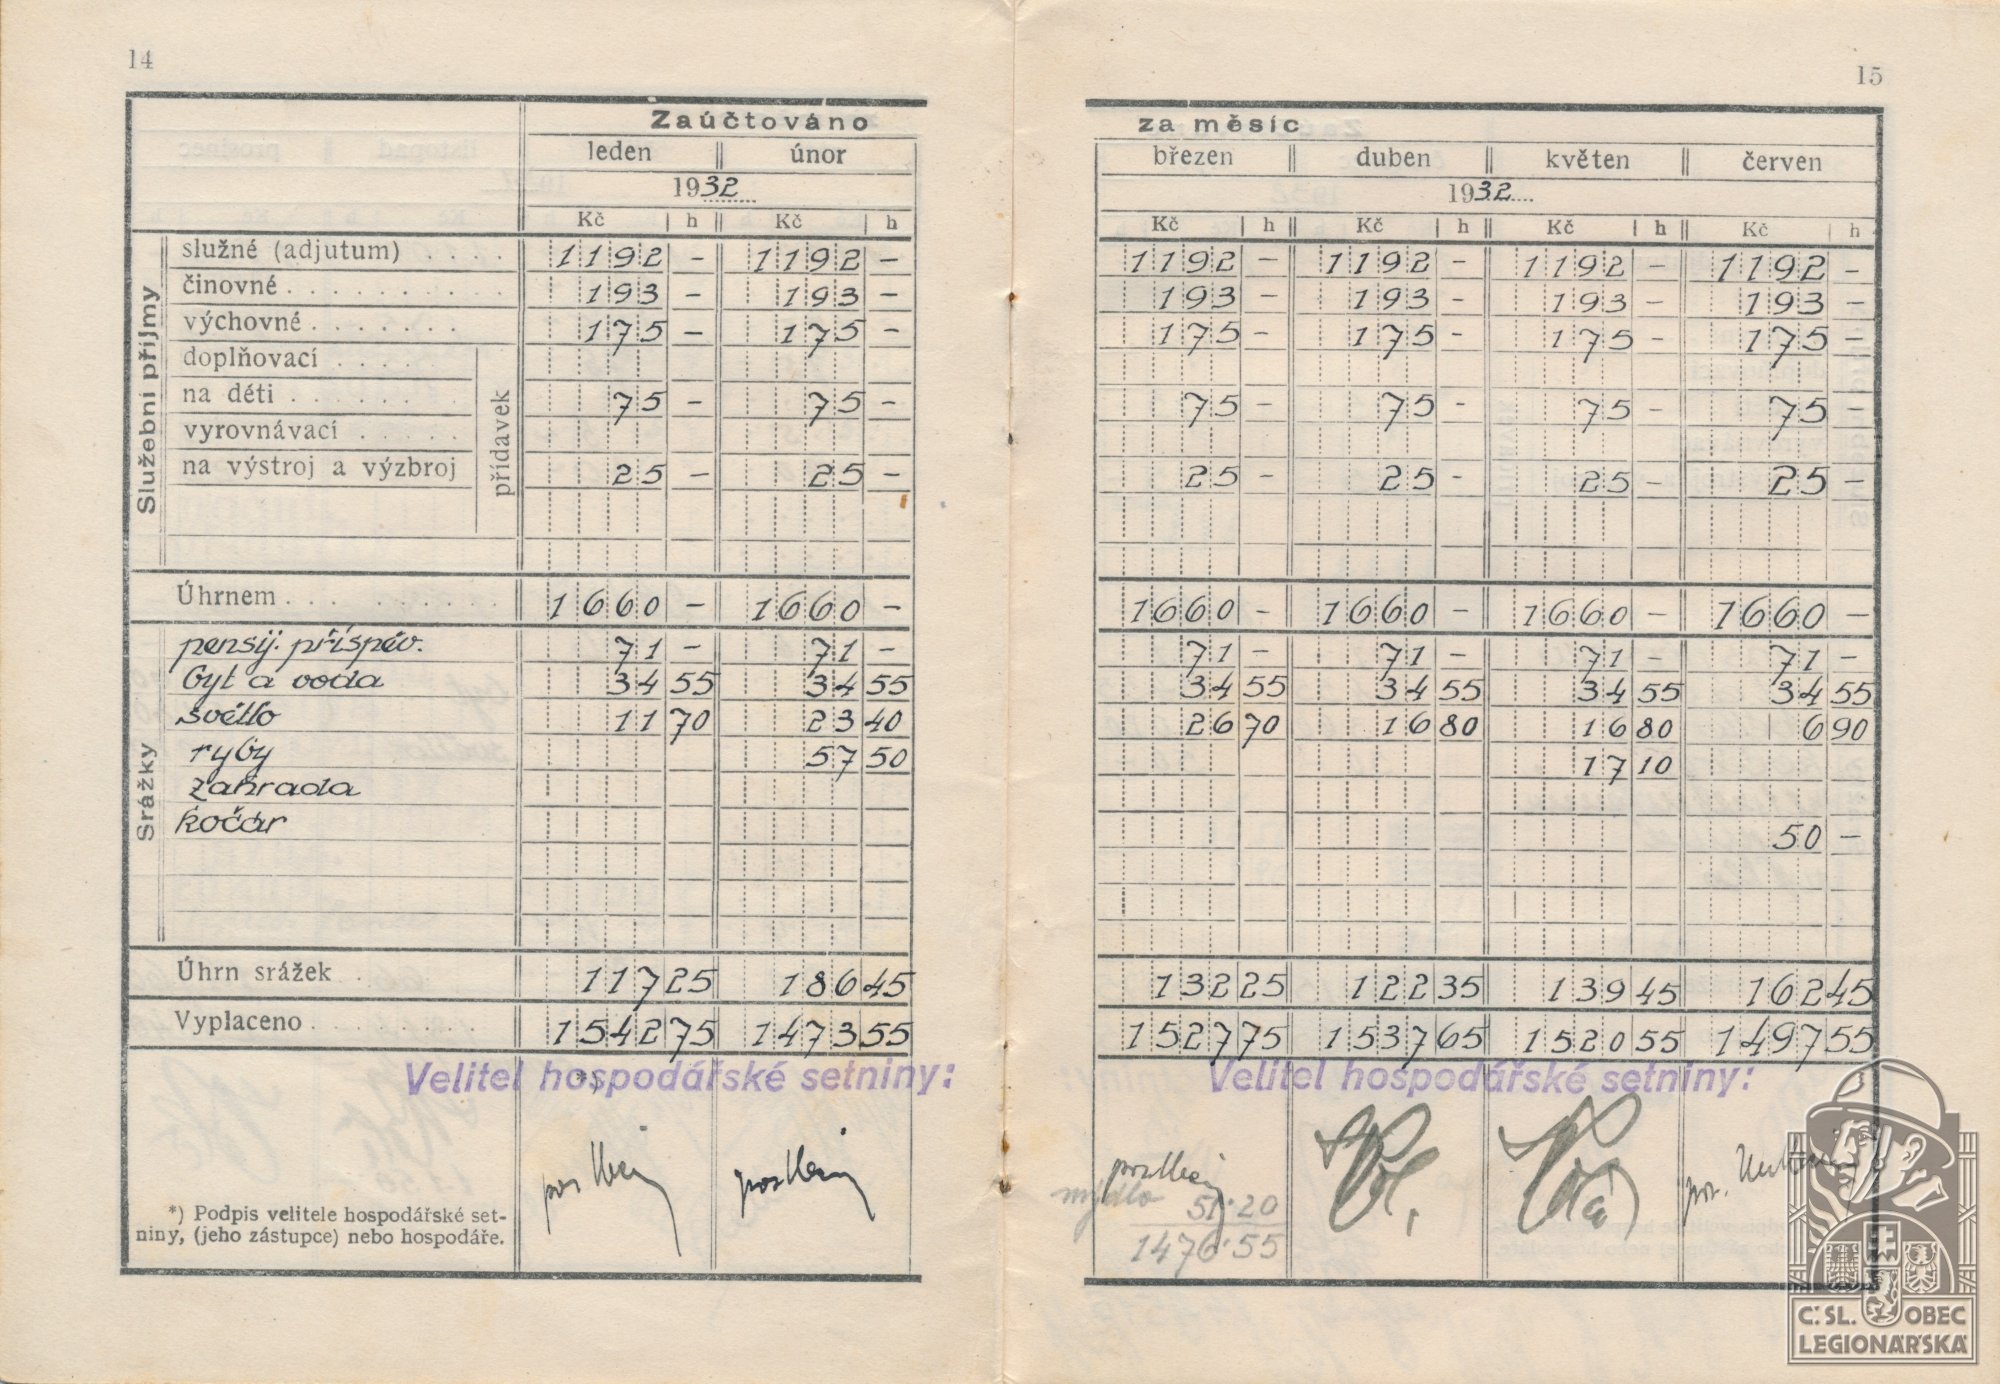 14
Zaúčtováno
leden únor
1932
Kč h Kč h
Služební příjmy
služné (adjutum) . . . . 1192 – 1192 –
činovné . . . . . . . . . 193 – 193 –
výchovné . . . . . . . 175 – 175 –
přídavek
doplňovací . . . .
na děti . . . . . . 75 – 75 –
vyrovnávací . . . . .
na výstroj a výzbroj 25 – 25 –
Úhrnem . . . . . . . . . . 1660 – 1660 –
Srážky
pensij. příspěv. 71 – 71 –
byt a voda 34 55 34 55
světlo 11 70 23 40
ryby 57 50
zahrada
kočár
Úhrn srážek . 117 25 186 45
Vyplaceno . . . . . . . . 1542 75 1473 55
Velitel hospodářské setniny:
*)
*) Podpis velitele hospodářské set-
niny, (jeho zástupce) nebo hospodáře.
15
za měsíc
březen duben květen červen
1932
Kč h Kč h Kč h Kč h
1192 – 1192 – 1192 – 1192 –
193 – 193 – 193 – 193 –
175 – 175 – 175 – 175 –
75 – 75 – 75 – 75 –
25 – 25 – 25 – 25 –
1660 – 1660 – 1660 – 1660 –
71 – 71 – 71 – 71 –
34 55 34 55 34 55 34 55
26 70 16 80 16 80 6 90
17 10
50 –
132 25 122 35 139 45 162 45
1527 75 1537 65 1520 55 1497 55
Velitel hospodářské setniny:
mýdlo 51·20
1476·55
Č. SL. OBEC
LEGIONÁŘSKÁ